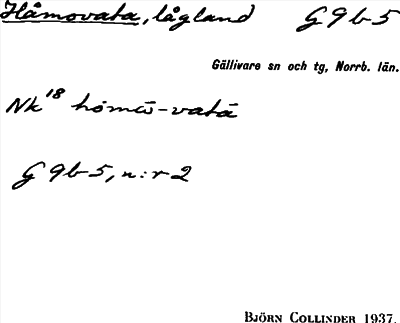 Håmovata, lågland G 9 b 5
Gällivare sn och tg, Norrb. län.
Nk 18 hömω̄-vatā
G 9 b 5, n:r 2
BJÖRN COLLINDER 1937.